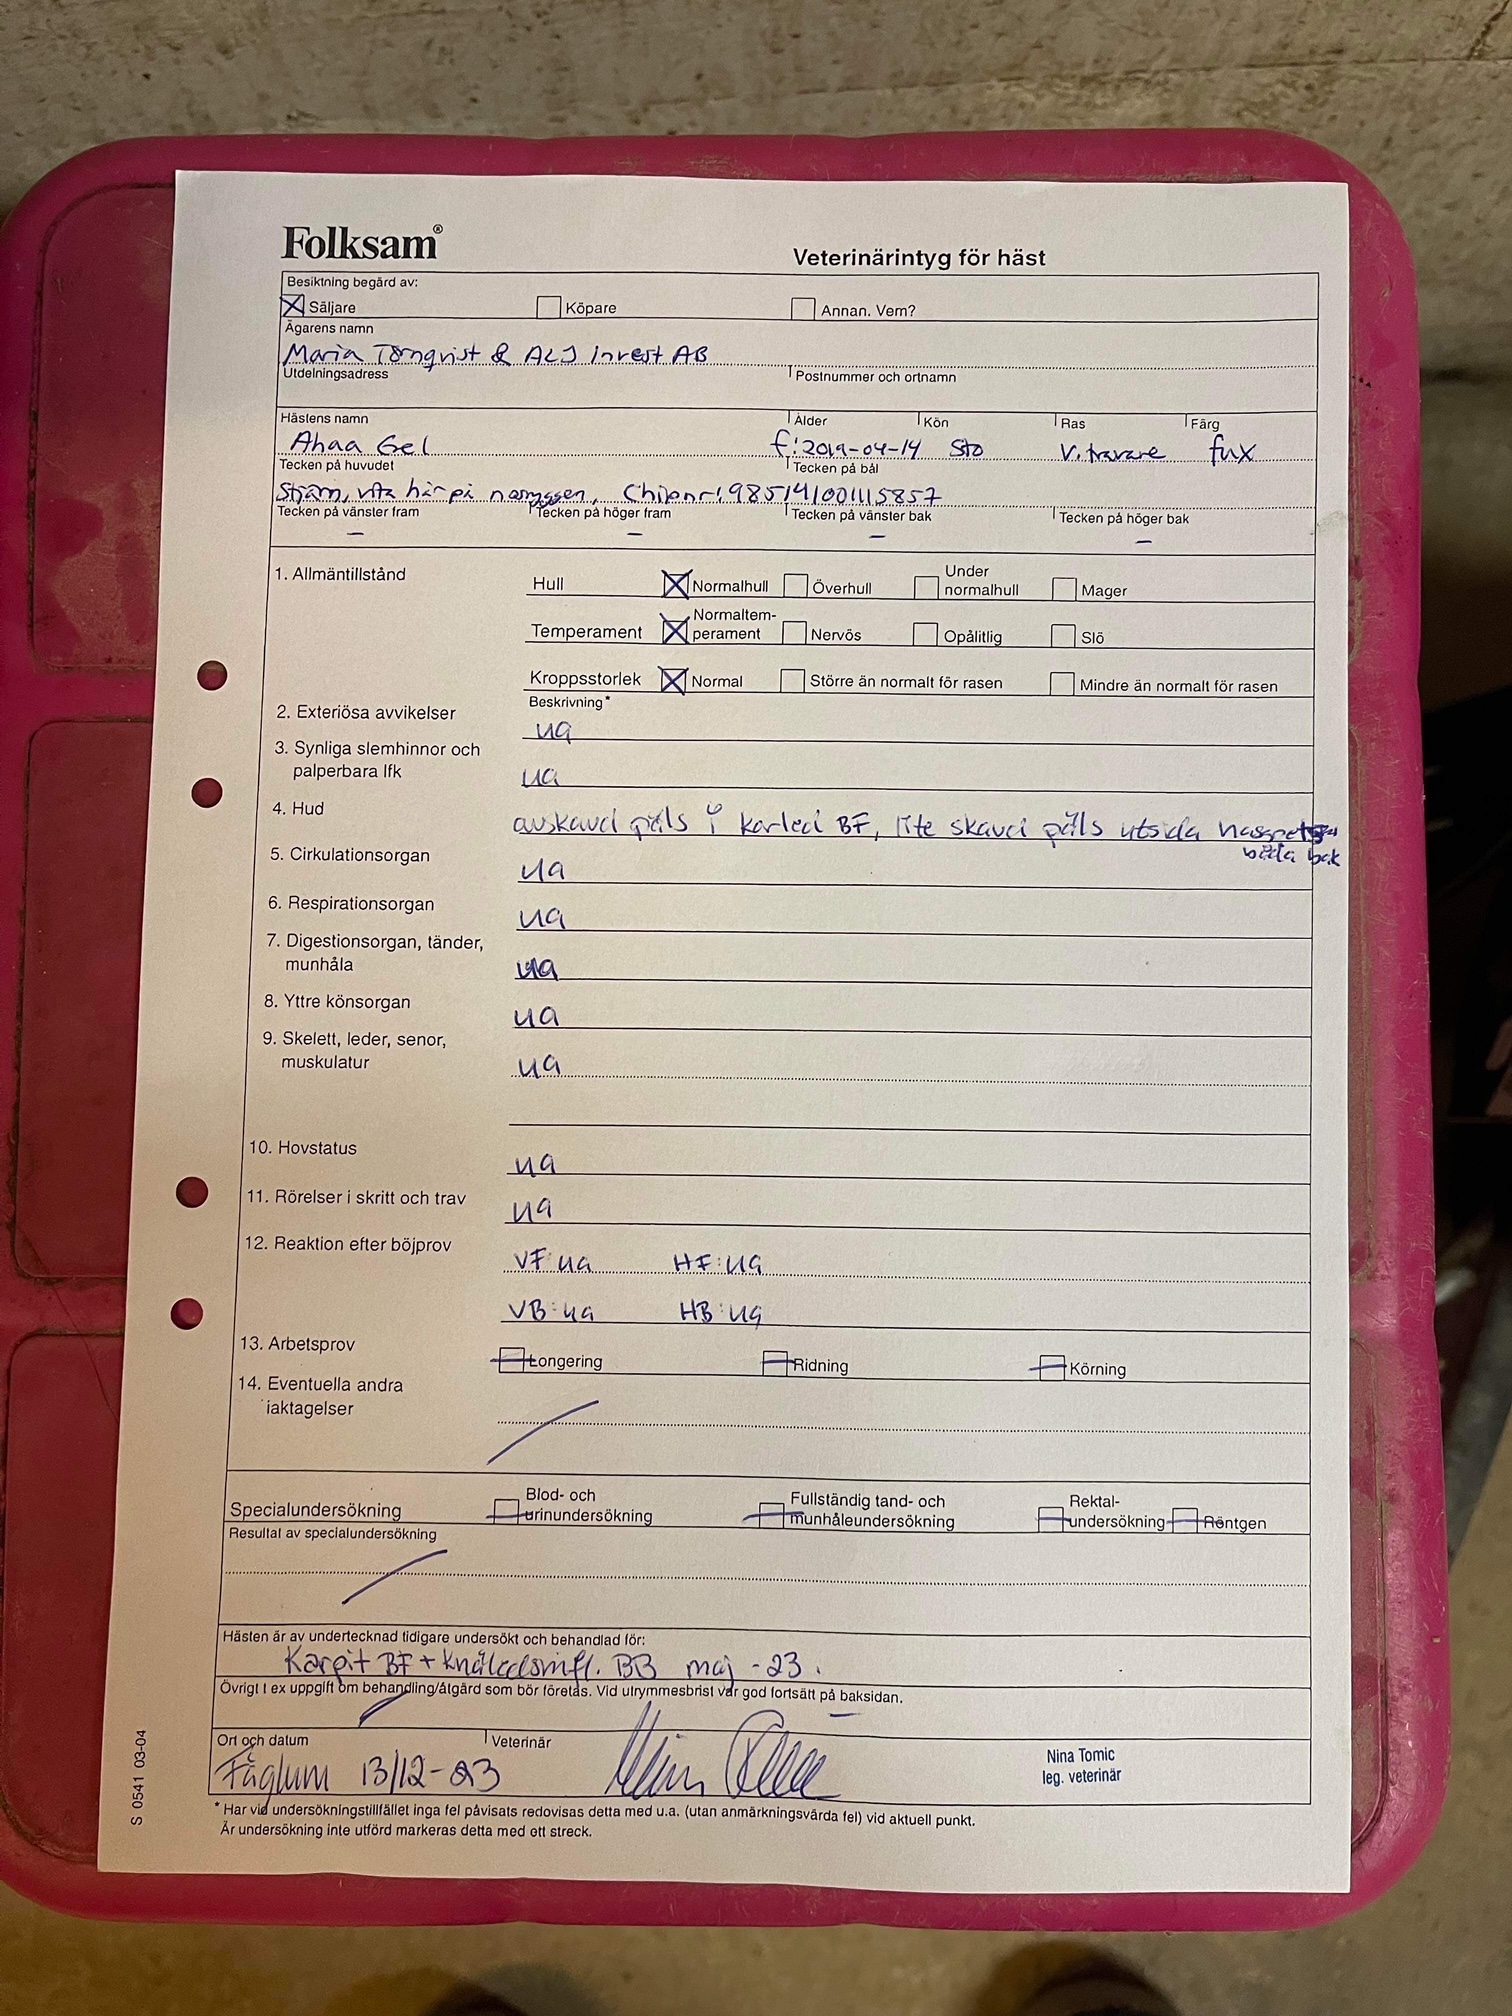 Folksam®
Veterinärintyg för häst
Besiktning begärd av:
Säljare Köpare Annan. Vem?
Ägarens namn
Maria Törnqvist & ALJ Invest AB
Utdelningsadress Postnummer och ortnamn
Hästens namn Ålder Kön Ras Färg
Ahaa Gel f:2019-04-14 Sto v.travare fux
Tecken på huvudet Tecken på bål
Stjärn, vita hår på nosryggen, Chipnr: 985141001115857
Tecken på vänster fram Tecken på höger fram Tecken på vänster bak Tecken på höger bak
– – – –
1. Allmäntillstånd Hull Normalhull Överhull Under normalhull Mager
Temperament Normaltem-perament Nervös Opålitlig Slö
Kroppsstorlek Normal Större än normalt för rasen Mindre än normalt för rasen
Beskrivning*
2. Exteriösa avvikelser ua
3. Synliga slemhinnor och
palperbara lfk ua
4. Hud avskavd päls i karled BF, lite skavd päls utsida
båda bak
5. Cirkulationsorgan ua
6. Respirationsorgan ua
7. Digestionsorgan, tänder,
munhåla ua
8. Yttre könsorgan ua
9. Skelett, leder, senor,
muskulatur ua
10. Hovstatus ua
11. Rörelser i skritt och trav ua
12. Reaktion efter böjprov VF: ua HF: ua
VB: ua HB: ua
13. Arbetsprov Longering Ridning Körning
14. Eventuella andra
iaktagelser
Specialundersökning Blod- och urinundersökning Fullständig tand- och munhåleundersökning Rektal-undersökning Röntgen
Resultat av specialundersökning
Hästen är av undertecknad tidigare undersökt och behandlad för:
Karpit BF + knäledsinfl. BB maj -23.
Övrigt t ex uppgift om behandling/åtgärd som bör företas. Vid utrymmesbrist var god fortsätt på baksidan.
Ort och datum Veterinär
Fåglum 13/12-23
Nina Tomic
leg. veterinär
* Har vid undersökningstillfället inga fel påvisats redovisas detta med u.a. (utan anmärkningsvärda fel) vid aktuell punkt.
Är undersökning inte utförd markeras detta med ett streck.
S 0541 03-04